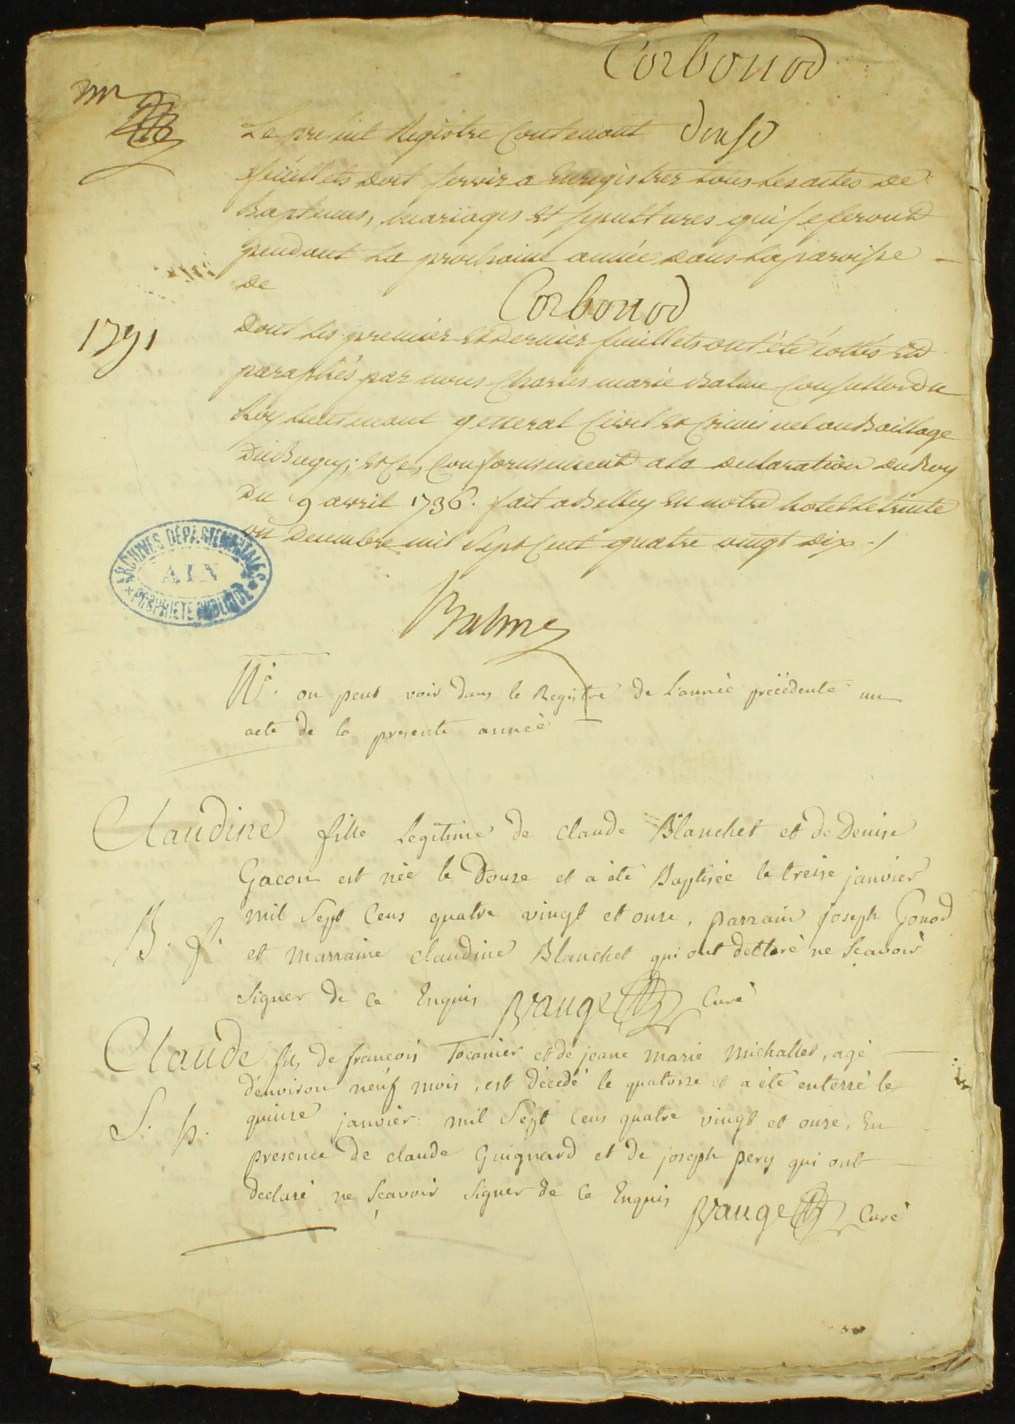 Corbonod
Le present Registre Contenant douse
feüillets doit servir a Enregistrer tous les actes de
Baptemes, mariages et sepultures qui se feront
pendant la prochaine année dans la paroisse
de
Corbonod
1791
Dont les premier et dernier feuillets ont été cottés et
paraphés par nous Charles marie Balme Conseiller du
Roy lieutenant general Civil et Criminel au Bailliage
Du Bugey, Conformement a la declaration du Roy
du 9 avril 1736. fait a Belley en notre hotel le trente
un Decembre mil sept Cent quatre vingt dix
ARCHIVES DÉPARTEMENTALES
AIN
PROPRIÉTÉ PUBLIQUE
Balme
on peut voir dans le Registre de L'année précédente un
acte de la presente année
Claudine fille Legitime de Claude Blanchet et de Denise
Gacon est née le Douse et a été Baptisée le treise janvier
mil Sept Cens quatre vingt et onse, parrain joseph Gonod
B. f.
et marraine Claudine Blanchet qui ont declaré ne Sçavoir
Signer de ce Enquis Vauge Curé
Claude fils de francois Toconier et de jeane marie michallet, agé
d'environ neuf mois, est décédé le quatorse et a été enterré le
S. p.
quinse janvier mil Sept Cens quatre vingt et onse, En
presence de claude Guignard et de joseph pery qui ont
declaré ne Sçavoir Signer de Ce Enquis
Vauge Curé